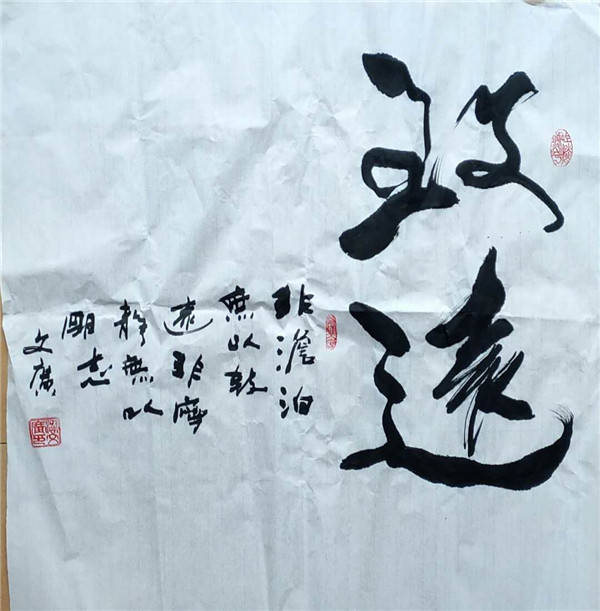 致遠
非澹泊
無以致
遠非寧
静無以
明志
文廣